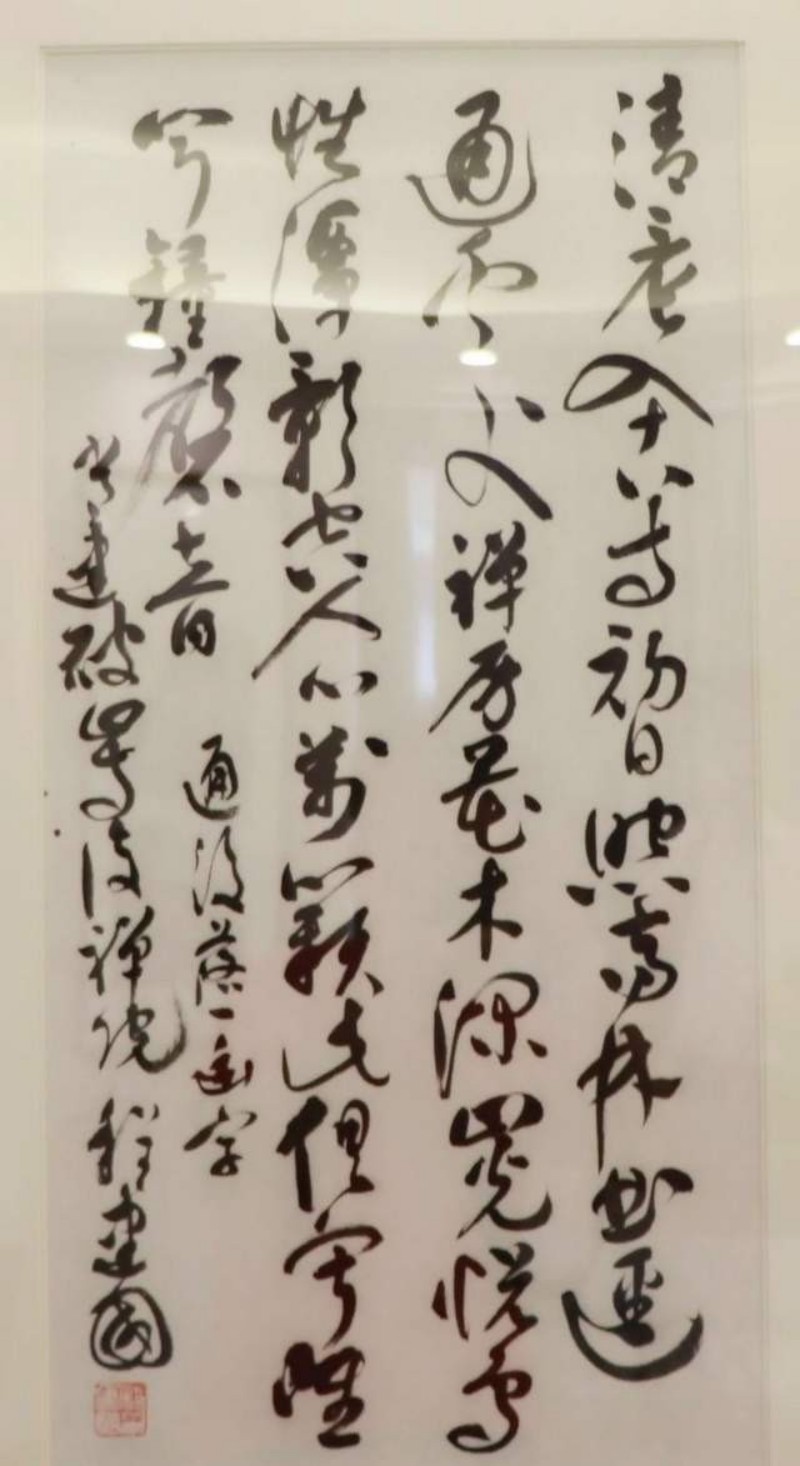 清晨入古寺初日照高林曲逕
通處禪房花木深山光悅鳥
性潭影空人心萬籟此俱寂唯
聞鐘磬音
通後落一幽字
常建破山寺後禪院 程建國